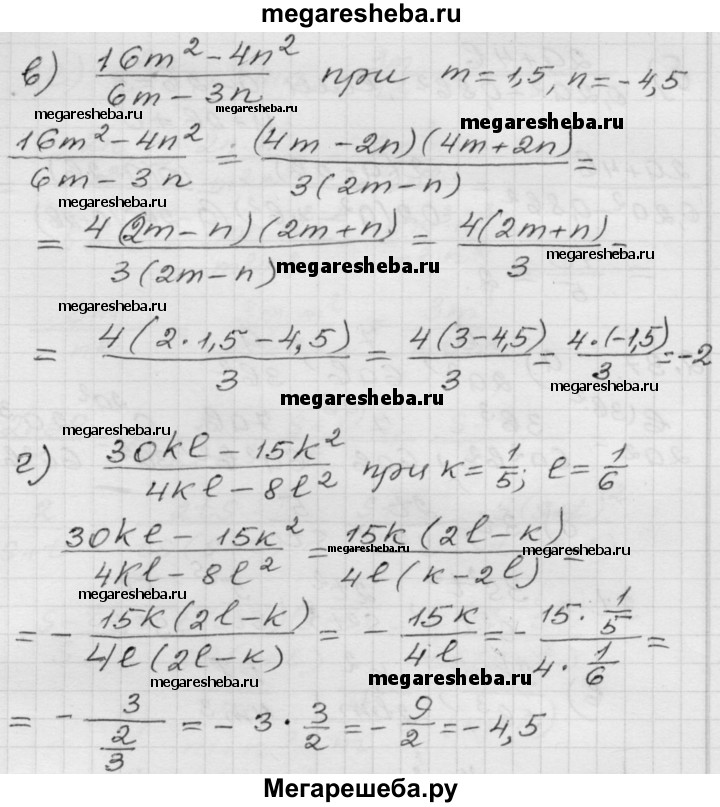 megaresheba.ru
в) (16m² – 4n²)/(6m – 3n) при m = 1,5, n = – 4,5
megaresheba.ru megaresheba.ru megaresheba.ru
(16m² – 4n²)/(6m – 3n) = ((4m – 2n)(4m + 2n))/(3(2m – n)) =
megaresheba.ru
= (4(2m – n)(2m + n))/(3(2m – n)) = (4(2m + n))/3 =
megaresheba.ru megaresheba.ru
megaresheba.ru
= (4(2·1,5 – 4,5))/3 = (4(3 – 4,5))/3 = (4·(–1,5))/3 = –2
megaresheba.ru megaresheba.ru
megaresheba.ru
г) (30kl – 15k²)/(4kl – 8l²) при k = 1/5; l = 1/6
(30kl – 15k²)/(4kl – 8l²) = (15k(2l – k))/(4l(k – 2l)) =
megaresheba.ru megaresheba.ru
megaresheba.ru
= – (15k(2l – k))/(4l(2l – k)) = – (15k)/(4l) = – (15 · 1/5)/(4 · 1/6) =
megaresheba.ru megaresheba.ru
= – 3/(2/3) = – 3 · 3/2 = – 9/2 = – 4,5
Мегарешеба.ру